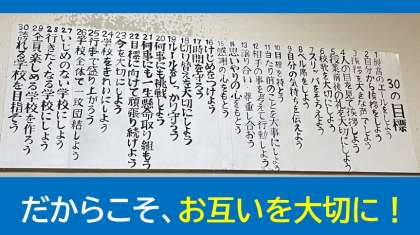 30の目標
1 最高のエールをしよう
2 自分から挨拶をしよう
4 人の目を見て話をしよう
5 授業前後の礼を大切にしよう
6 校歌を大切にしよう
7 スリッパをそろえよう
8 ベル席をしよう
9 自分の気持ちを伝えよう
11 当たり前のことを大事にしよう
12 相手の事を考えて行動しよう
13 譲り合い 尊重し合おう
14 思いやりの心をもとう
15 感謝の心をもとう
16 けじめをつけよう
17 時間を守ろう
18 ルールをしっかり守ろう
19 切り替えを大切にしよう
20 何事にも挑戦しよう
21 何事にも一生懸命取り組もう
22 目標に向けて頑張り続けよう
23 今を大切にしよう
24 学校をきれいにしよう
25 行事で盛り上がろう
26 学校全体で一致団結しよう
27 いじめのない学校にしよう
28 行きたくなる学校にしよう
29 全員楽しめる学校を作ろう
30 誇れる学校を目指そう
だからこそ、お互いを大切に！